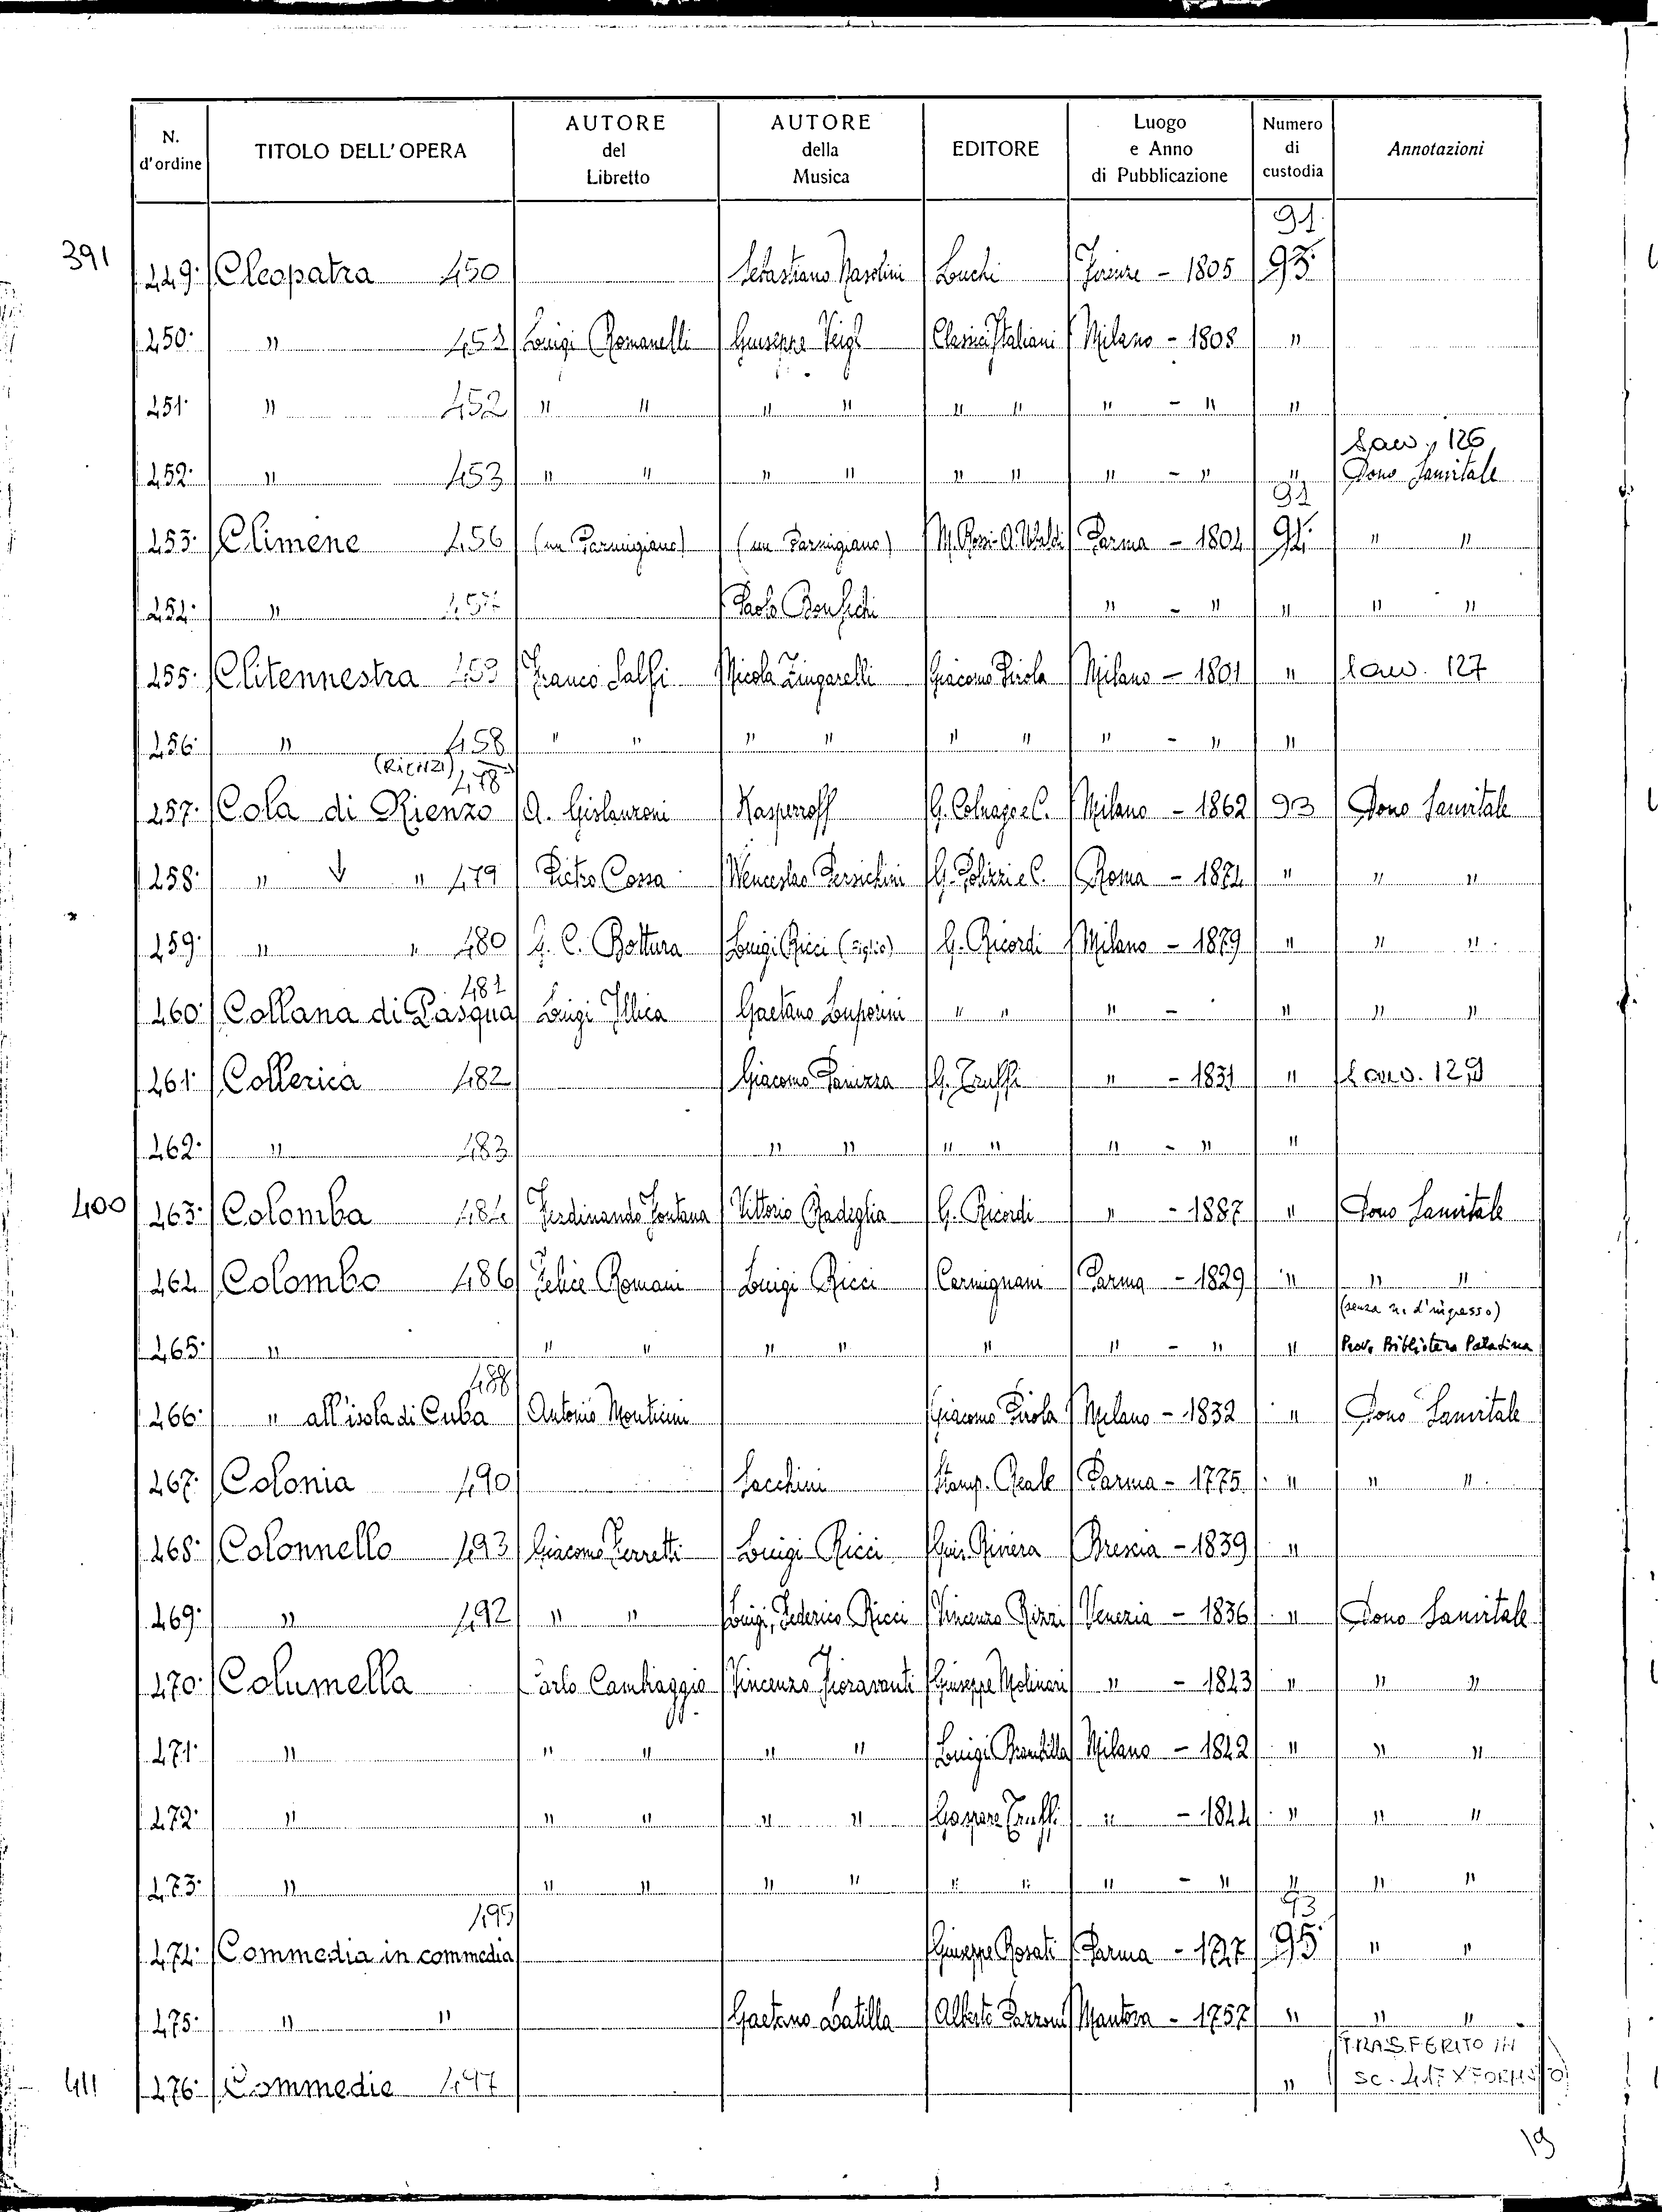 N. d'ordine | TITOLO DELL'OPERA | AUTORE del Libretto | AUTORE della Musica | EDITORE | Luogo e Anno di Pubblicazione | Numero di custodia | Annotazioni
91
391 449. Cleopatra 450 Sebastiano Nasolini Luchi Firenze - 1805 93.
450. " 451 Luigi Romanelli Giuseppe Veigl Classici Italiani Milano - 1808 "
451. " 452 " " " " " " " - " "
Law. 126
452. " 453 " " " " " " " - " " Dono Sanvitale
91
453. Climene 456 (un Parmigiano) (un Parmigiano) M. Rossi-A. Ubaldi Parma - 1804 94. " "
454. " 457 Paolo Bonfichi " - " " " "
455. Clitennestra 459 Franco Salfi Nicola Zingarelli Giacomo Pirola Milano - 1801 " Law. 127
456. " 458 " " " " " " " - " "
(RIENZI) 478
457. Cola di Rienzo A. Gislanzoni Kasperroff G. Colnago e C. Milano - 1862 93 Dono Sanvitale
458. " " 479 Pietro Cossa Wenceslao Persichini G. Polizzi e C. Roma - 1874 " " "
459. " " 480 G. C. Bottura Luigi Ricci (Figlio) G. Ricordi Milano - 1879 " " "
481
460. Collana di Pasqua Luigi Illica Gaetano Luporini " " " - " " "
461. Collerica 482 Giacomo Panizza G. Truffi " - 1831 " Law. 129
462. " 483 " " " " " - " "
400 463. Colomba 484 Ferdinando Fontana Vittorio Radeglia G. Ricordi " - 1887 " Dono Sanvitale
464 Colombo 486 Felice Romani Luigi Ricci Carmignani Parma - 1829 " " "
(senza n. d'ingresso)
465. " " " " " " " - " " Prov. Biblioteca Palatina
488
466. " all'isola di Cuba Antonio Monticini Giacomo Pirola Milano - 1832 " Dono Sanvitale
467. Colonia 490 Sacchini Stamp. Reale Parma - 1775 " " "
468. Colonnello 493 Giacomo Ferretti Luigi Ricci Riviera Brescia - 1839 "
469. " 492 " " Luigi, Federico Ricci Vincenzo Rizzi Venezia - 1836 " Dono Sanvitale
470. Columella Carlo Cambiaggio Vincenzo Fioravanti Giuseppe Molinari " - 1843 " " "
471. " " " " " Luigi Brambilla Milano - 1842 " " "
472. " " " " " Gaspare Truffi " - 1844 " " "
473. " " " " " " " " - " " " "
495 93
474. Commedia in commedia Giuseppe Rosati Parma - 1727 95. " "
475. " " Gaetano Latilla Alberto Pazzoni Mantova - 1757 " " "
TRASFERITO IN
411 476. Commedie 497 " SC. 417 X FORMATO
19